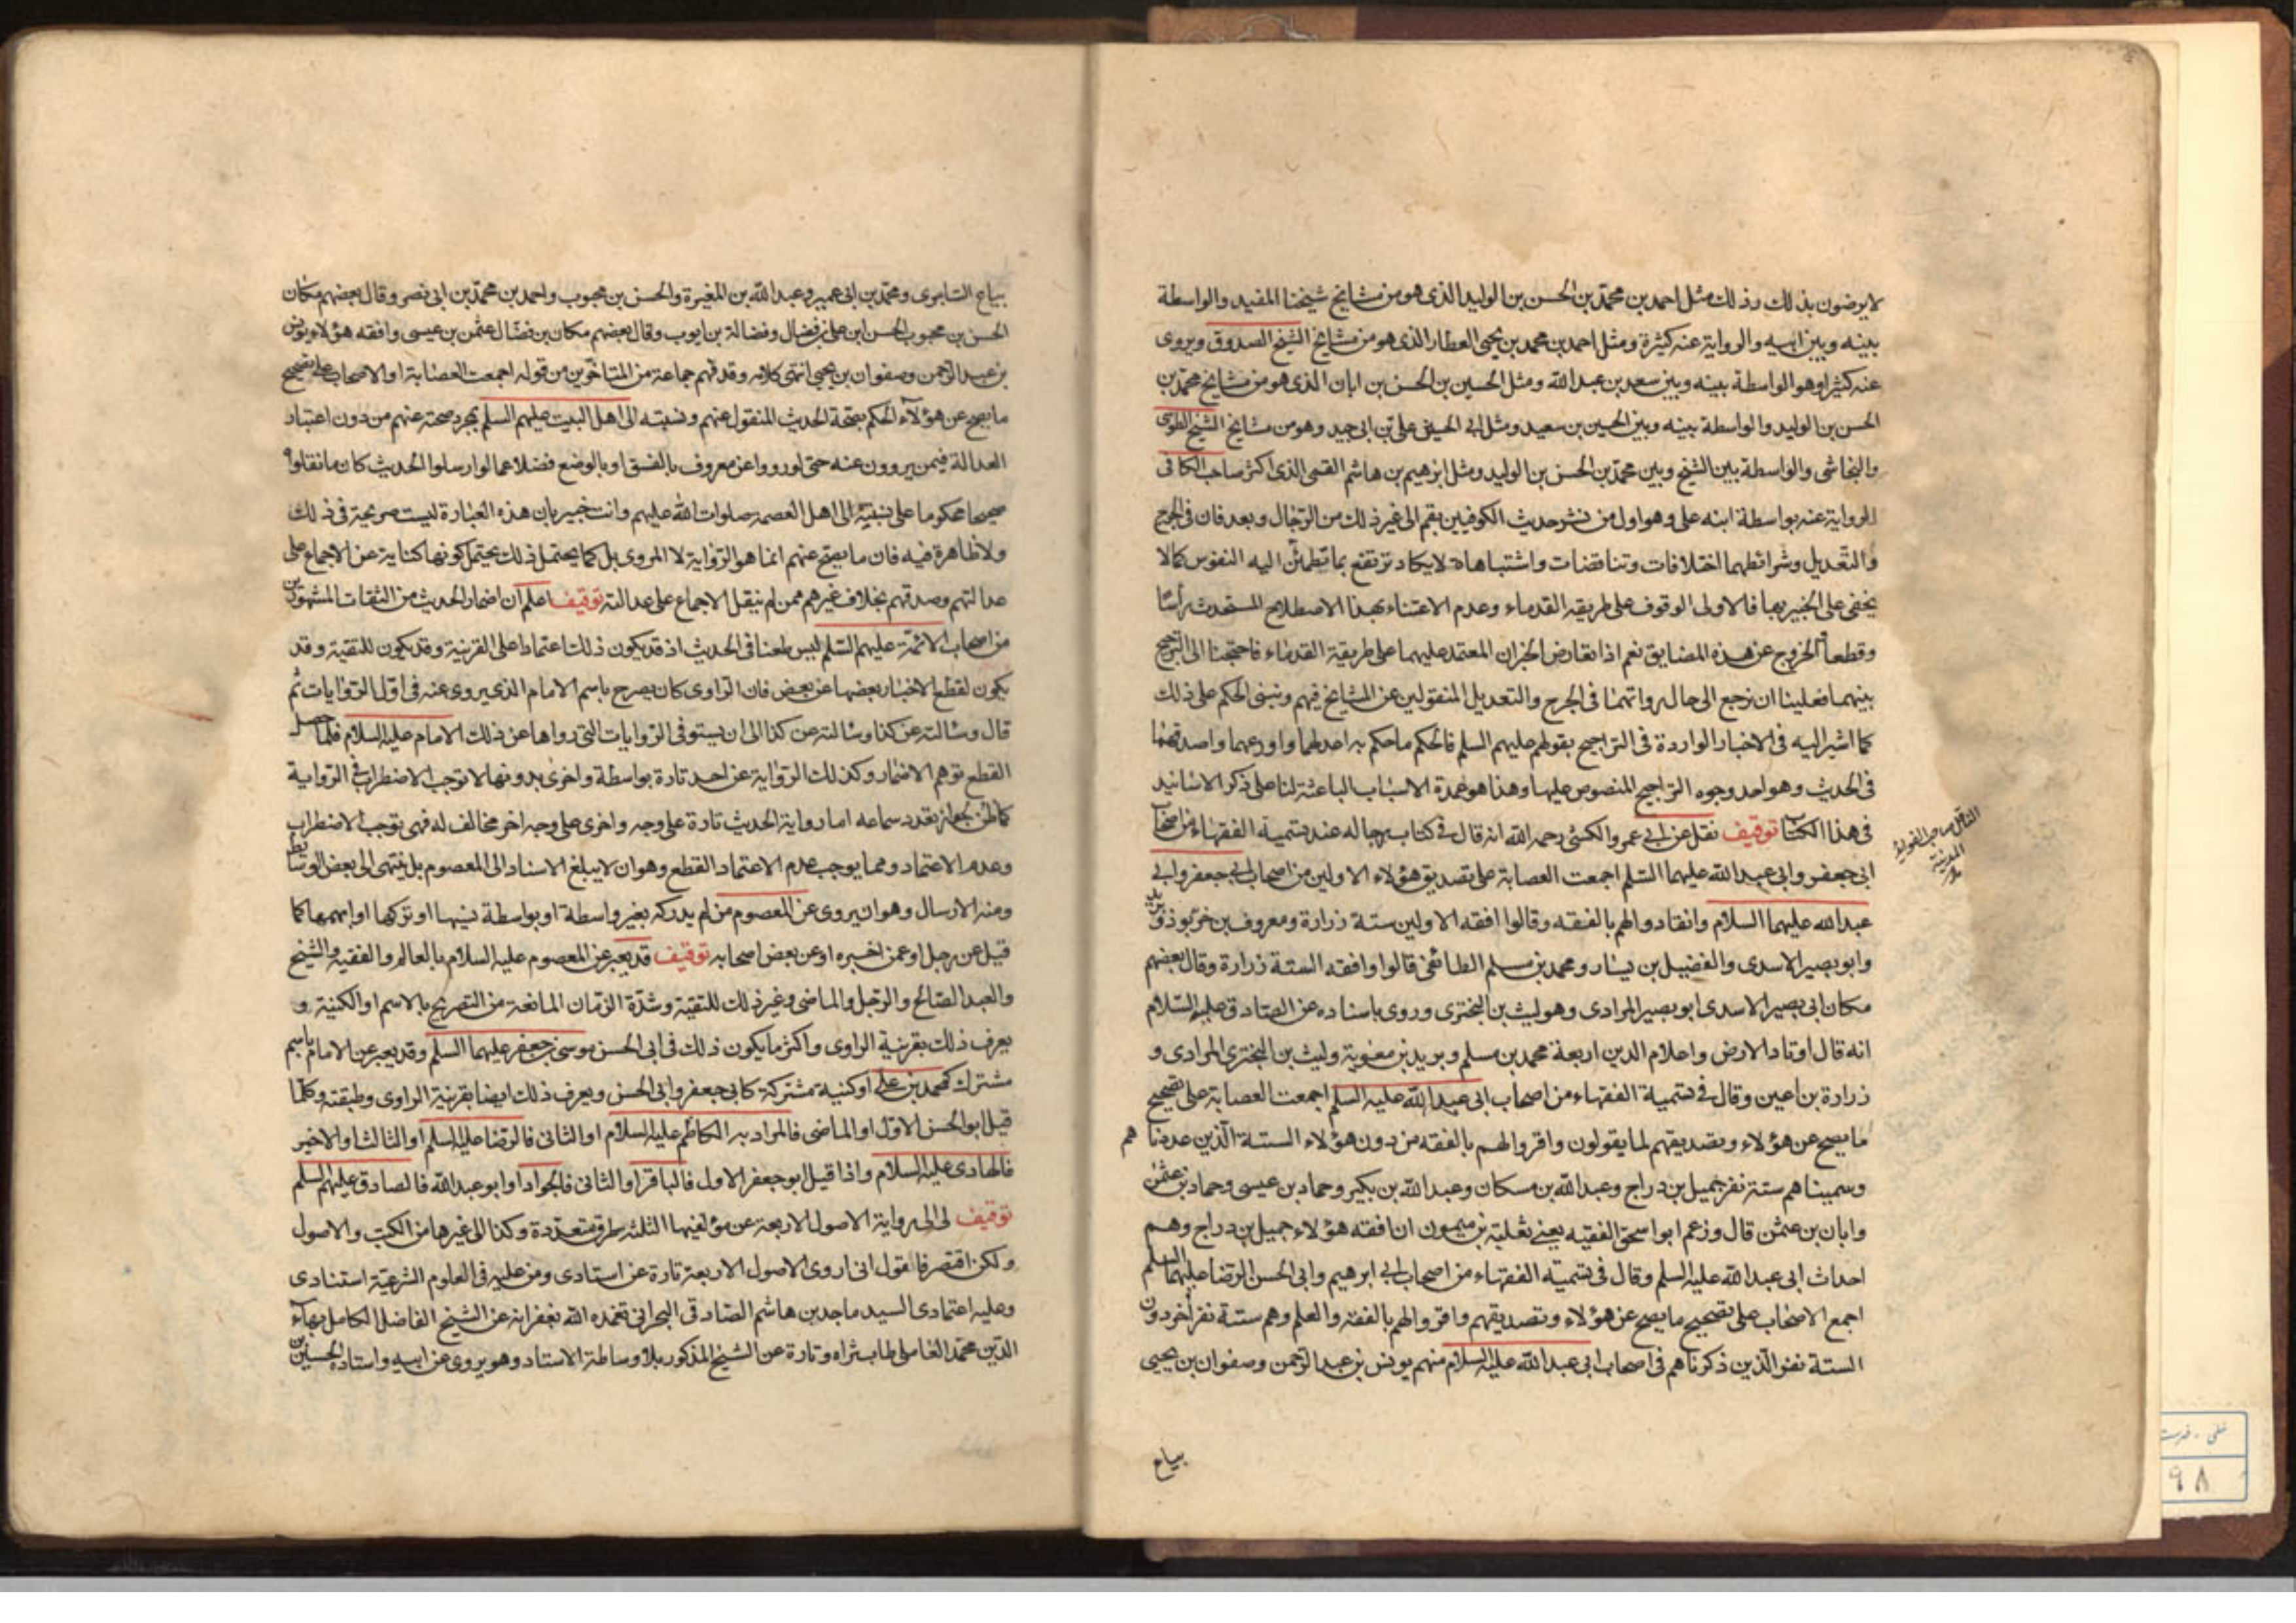 لا يرضون بذلك وذلك مثل احمد بن محمد بن الحسن بن الوليد الذى هو من مشايخ شيخنا المفيد والواسطة
بينه وبين ابيه والرواية عنه كثيرة ومثل احمد بن محمد بن يحيى العطار الذى هو من مشايخ الشيخ الصدوق ويروى
عنه كثيرا وهو الواسطة بينه وبين سعد بن عبد الله ومثل الحسين بن الحسن بن ابان الذى هو من مشايخ محمد بن
الحسن بن الوليد والواسطة بينه وبين الحسين بن سعيد ومثل ابى الحسين على بن ابى جيد وهو من مشايخ الشيخ الطوسى
والنجاشى والواسطة بين الشيخ وبين محمد بن الحسن بن الوليد ومثل ابرهيم بن هاشم القمى الذى اكثر صاحب الكافى
الرواية عنه بواسطة ابنه على وهو اول من نشر حديث الكوفيين بقم الى غير ذلك من الرجال وبعد فان فى الجرح
والتعديل وشرائطهما اختلافات وتناقضات واشتباهات لا يكاد ترتفع بما تطمئن اليه النفوس كما لا
يخفى على الخبير بها فالاولى الوقوف على طريقة القدماء وعدم الاعتناء بهذا الاصطلاح المستحدث رأسا
وقطعا والخروج عن هذه المضايق نعم اذا تعارض الخبران المعتمد عليهما على طريقة القدماء فاحتجنا الى الترجيح
بينهما فعلينا ان نرجع الى حال رواتهما فى الجرح والتعديل المنقولين عن المشايخ فيهم ونبنى الحكم على ذلك
كما اشير اليه فى الاخبار الواردة فى التراجيح بقولهم عليهم السلم فالحكم ما حكم به اعدلهما واورعهما واصدقهما
فى الحديث وهو احد وجوه التراجيح المنصوص عليها وهذا هو عمدة الاسباب الباعثة لنا على ذكر الاسانيد
فى هذا الكتاب توقيف نقل عن ابى عمرو الكشى رحمه الله انه قال فى كتاب رجاله عند تسمية الفقهاء من اصحاب
ابى جعفر وابى عبد الله عليهما السلم اجمعت العصابة على تصديق هؤلاء الاولين من اصحاب ابى جعفر وابى
عبد الله عليهما السلام وانقادوا لهم بالفقه وقالوا افقه الاولين ستة زرارة ومعروف بن خربوذ وبريد
وابو بصير الاسدى والفضيل بن يسار ومحمد بن مسلم الطائفى قالوا وافقه الستة زرارة وقال بعضهم
مكان ابى بصير الاسدى ابو بصير المرادى وهو ليث بن البخترى وروى باسناده عن الصادق عليه السلام
انه قال اوتاد الارض واعلام الدين اربعة محمد بن مسلم وبريد بن معوية وليث بن البخترى المرادى و
زرارة بن اعين وقال فى تسمية الفقهاء من اصحاب ابى عبد الله عليه السلم اجمعت العصابة على تصحيح
ما يصح عن هؤلاء وتصديقهم لما يقولون واقروا لهم بالفقه من دون هؤلاء الستة الذين عددناهم
وسميناهم ستة نفر جميل بن دراج وعبد الله بن مسكان وعبد الله بن بكير وحماد بن عيسى وحماد بن عثمن
وابان بن عثمن قال وزعم ابو اسحق الفقيه يعنى ثعلبة بن ميمون ان افقه هؤلاء جميل بن دراج وهم
احداث ابى عبد الله عليه السلم وقال فى تسمية الفقهاء من اصحاب ابى ابرهيم وابى الحسن الرضا عليهما السلم
اجمع الاصحاب على تصحيح ما يصح عن هؤلاء وتصديقهم واقروا لهم بالفقه والعلم وهم ستة نفر أخر دون
الستة نفر الذين ذكرناهم فى اصحاب ابى عبد الله عليه السلام منهم يونس بن عبد الرحمن وصفوان بن يحيى
بياع
الناقل صاحب الفوائد
المدنية
بياع السابرى ومحمد بن ابى عمير وعبد الله بن المغيرة والحسن بن محبوب واحمد بن محمد بن ابى نصر وقال بعضهم مكان
الحسن بن محبوب الحسن ابن على بن فضال وفضالة بن ايوب وقال بعضهم مكان بن فضال عثمن بن عيسى وافقه هؤلاء يونس
بن عبد الرحمن وصفوان بن يحيى انتهى كلامه وقد فهم جماعة من المتاخرين من قوله اجمعت العصابة او الاصحاب على تصحيح
ما يصح عن هؤلآء الحكم بصحة الحديث المنقول عنهم ونسبته الى اهل البيت عليهم السلم بمجرد صحته عنهم من دون اعتبار
العدالة فيمن يروون عنه حتى لو رووا عن معروف بالفسق او بالوضع فضلا عما لو ارسلوا الحديث كان ما نقلوه
صحيحا محكوما على نسبته الى اهل العصمة صلوات الله عليهم وانت خبير بان هذه العبارة ليست صريحة فى ذلك
ولا ظاهرة فيه فان ما يصح عنهم انما هو الرواية لا المروى بل كما يحتمل ذلك يحتمل كونها كناية عن الاجماع على
عدالتهم وصدقهم بخلاف غيرهم ممن لم ينقل الاجماع على عدالته توقيف اعلم ان اضمار الحديث من الثقات المشهورين
من اصحاب الائمة عليهم السلم ليس طعنا فى الحديث اذ قد يكون ذلك اعتمادا على القرينة وقد يكون للتقية وقد
يكون لقطع الاخبار بعضها عن بعض فان الراوى كان يصرح باسم الامام الذى يروى عنه فى اول الروايات ثم
قال وسالته عن كذا وسالته عن كذا الى ان يستوفى الروايات التى رواها عن ذلك الامام عليه السلام فلما حصل
القطع توهم الاضمار وكذلك الرواية عن احد تارة بواسطة واخرى بدونها لا توجب الاضطراب فى الرواية
كما ظن لجواز تعدد سماعه اما رواية الحديث تارة على وجه واخرى على وجه اخر مخالف له فهى توجب الاضطراب
وعدم الاعتماد ومما يوجب عدم الاعتماد القطع وهو ان لا يبلغ الاسناد الى المعصوم بل ينتهى الى بعض الوسائط
ومنه الارسال وهو ان يروى عن المعصوم من لم يدركه بغير واسطة او بواسطة نسيها او تركها او ابهمها كما
قيل عن رجل او عمن اخبره او عن بعض اصحابه توقيف قد يعبر عن المعصوم عليه السلام بالعالم والفقيه والشيخ
والعبد الصالح والرجل والماضى وغير ذلك للتقية وشدة الزمان المانعة من التصريح بالاسم او الكنية و
يعرف ذلك بقرينة الراوى واكثر ما يكون ذلك فى ابى الحسن موسى بن جعفر عليهما السلم وقد يعبر عن الامام باسم
مشترك كمحمد بن على او كنية مشتركة كابى جعفر وابى الحسن ويعرف ذلك ايضا بقرينة الراوى وطبقته وكلما
قيل ابو الحسن الاول او الماضى فالمراد به الكاظم عليه السلام او الثانى فالرضا عليه السلم او الثالث او الاخير
فالهادى عليه السلام واذا قيل ابو جعفر الاول فالباقر او الثانى فالجواد او ابو عبد الله فالصادق عليهم السلم
توقيف لى الى رواية الاصول الاربعة عن مؤلفيها الثلثه طرق متعددة وكذا الى غيرها من الكتب والاصول
ولكن اقتصر فاقول انى اروى الاصول الاربعة تارة عن استادى ومن عليه فى العلوم الشرعية استنادى
وعليه اعتمادى السيد ماجد بن هاشم الصادقى البحرانى تغمده الله بغفرانه عن الشيخ الفاضل الكامل بهآء
الدين محمد العاملى طاب ثراه وتارة عن الشيخ المذكور بلا وساطة الاستاد وهو يروى عن ابيه واستاده الحسين بن
٩٨